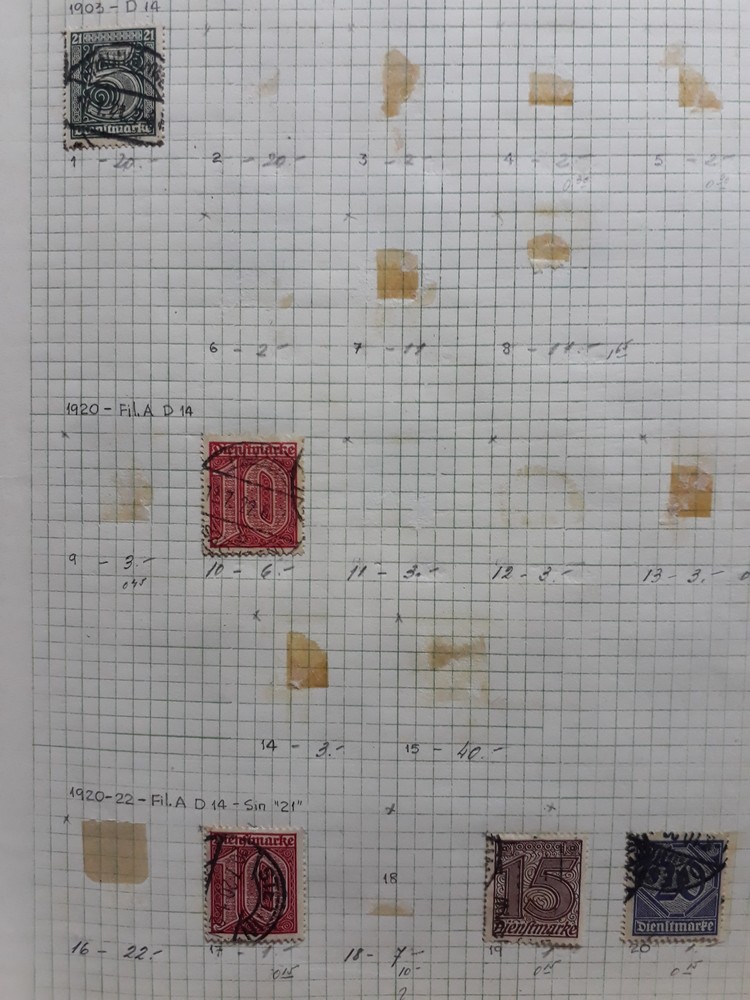 1903 - D 14
21 21
5
Dienstmarke
1 - 20.-
2 - 20.-
3 - 2
4 - 2-
5 - 2-
6 - 2-
7 - 11
8 - 11.-
1920 - Fil. A D 14
Dienstmarke
10
9 - 3.-
0 45
10 - 6.-
11 - 3.-
12 - 3.-
13 - 3.-
14 - 3.-
15 - 40.-
1920-22 - Fil. A D 14 - Sin "21"
Dienstmarke
10
18
15
Dienstmarke
20
Dienstmarke
16 - 22.-
17 - 1.-
0 15
18 - 7-
10-
?
19
0 15
20
0 15